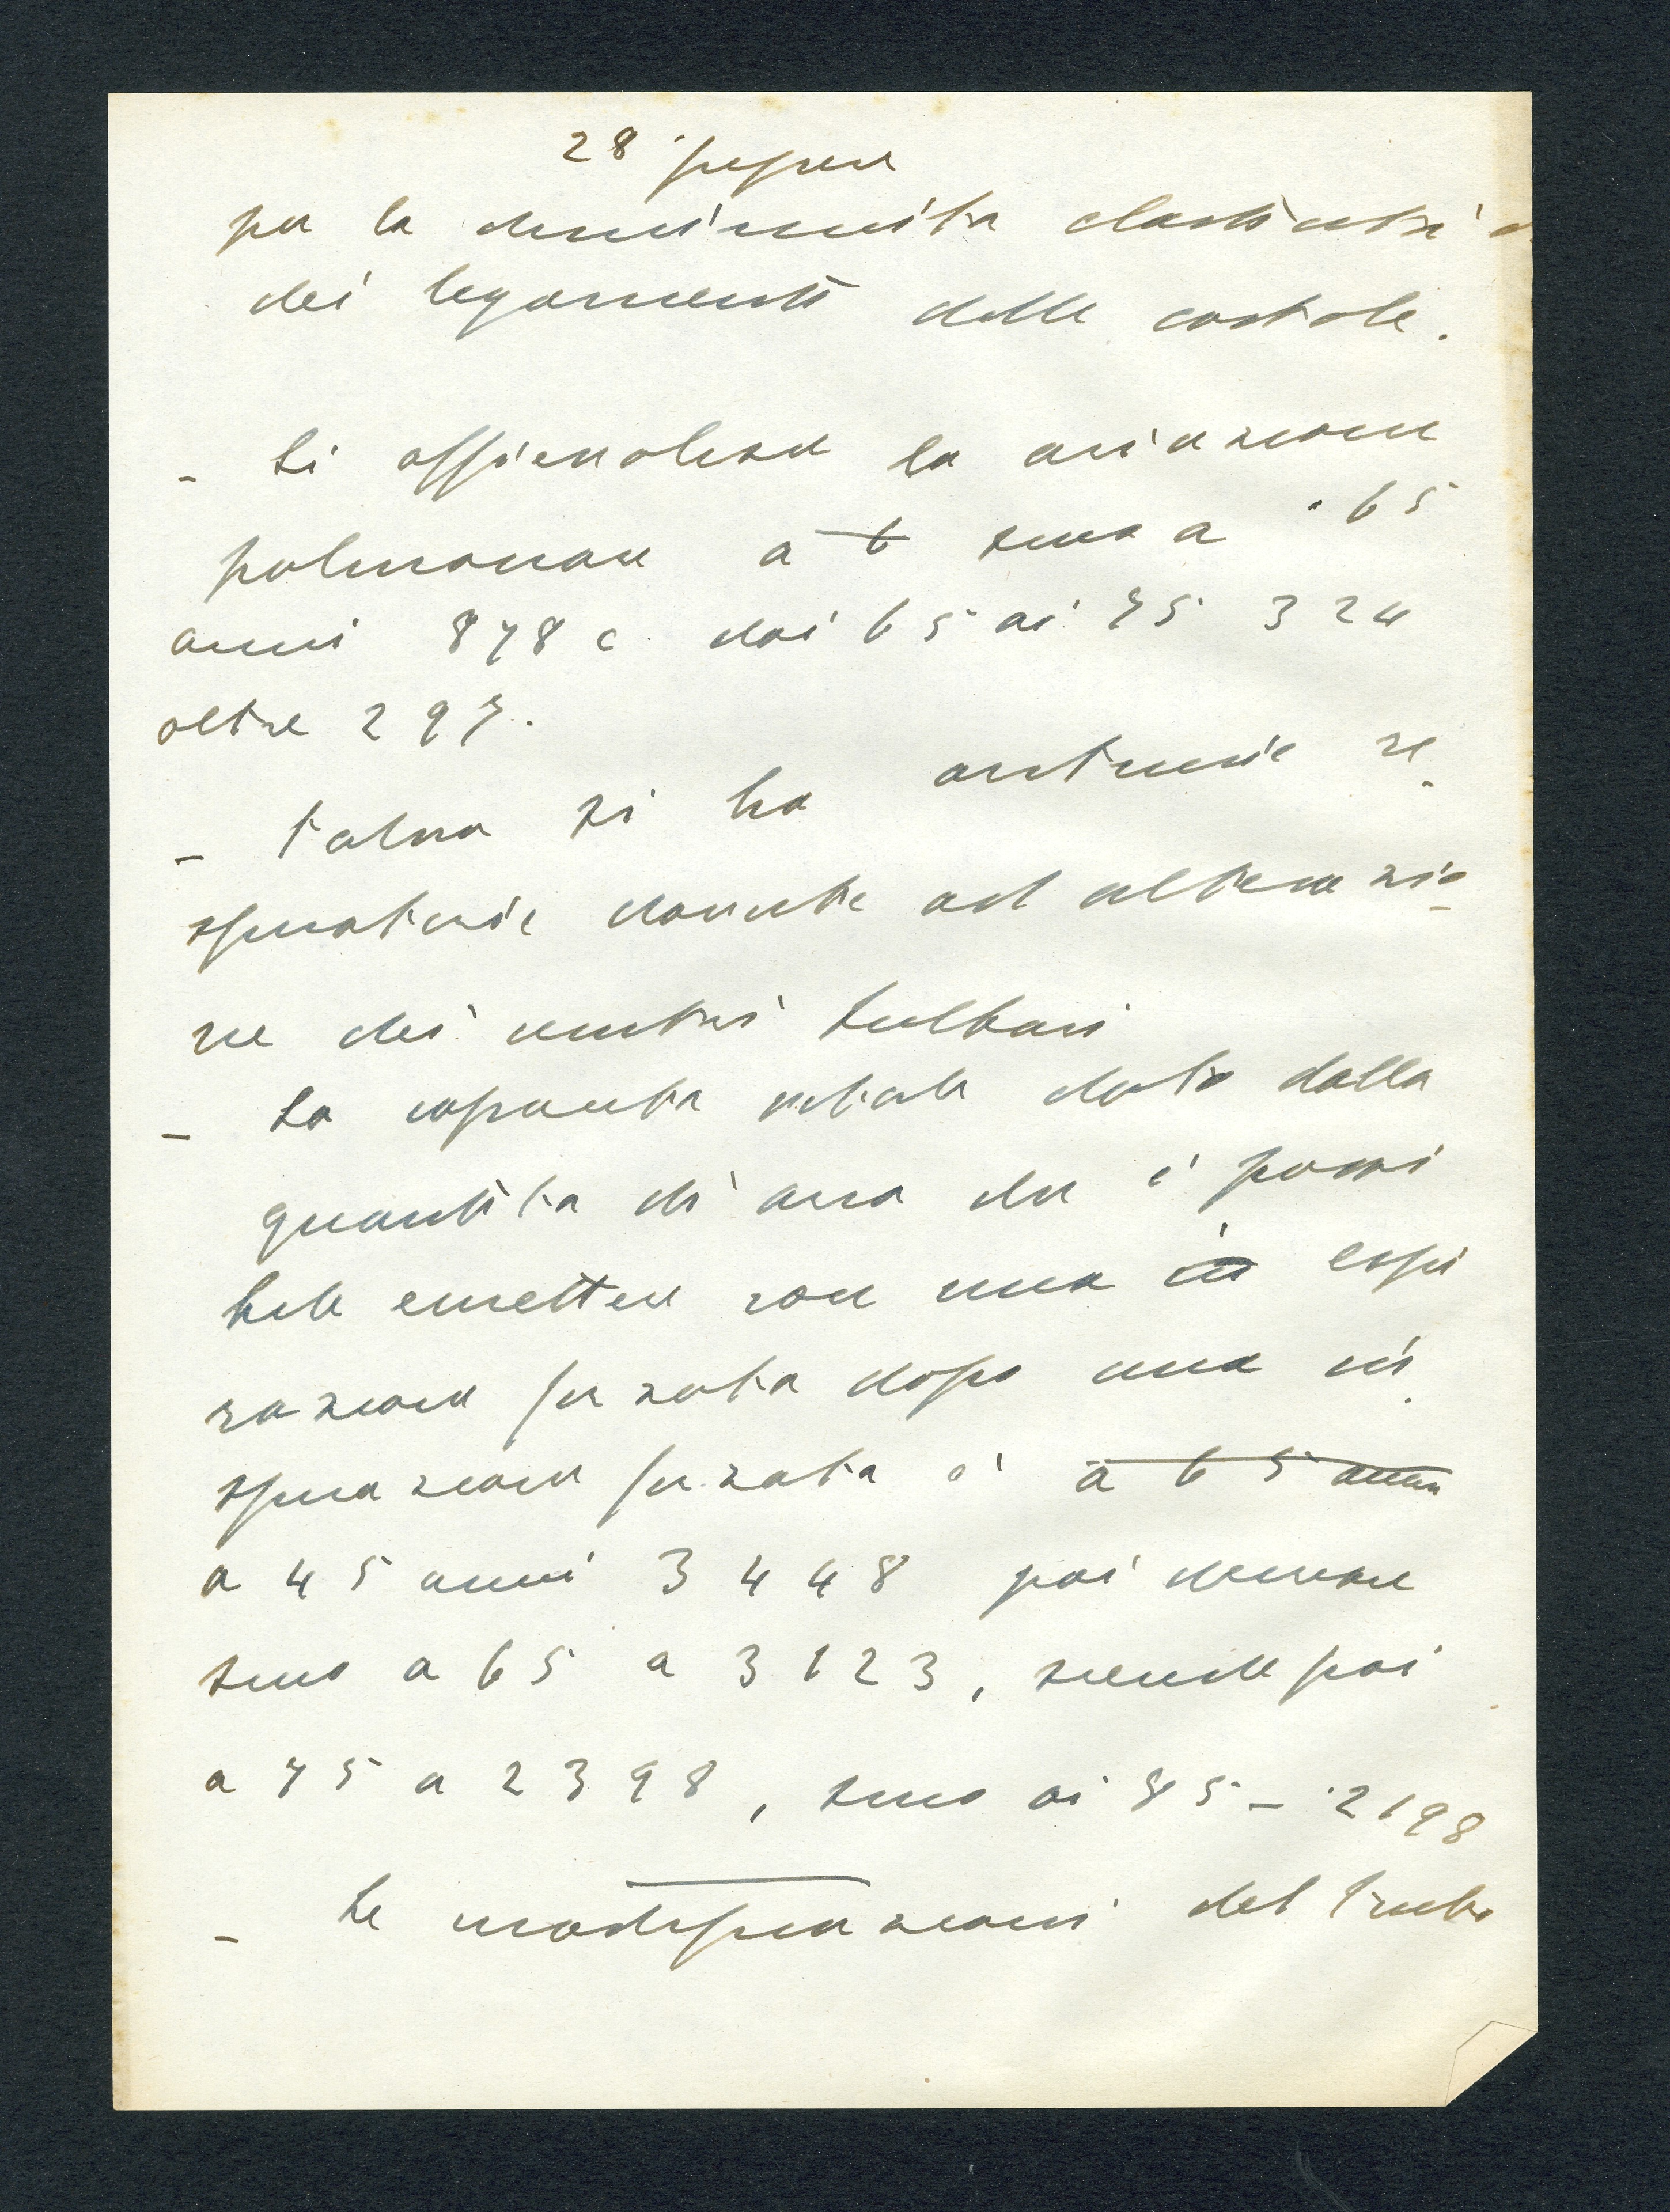 28
per la diminuita elasticità
dei legamenti delle costole.
- Si affievolisce la areazione
polmonare a 6 sino a 65
anni 878 e dai 65 ai 75 324
oltre 297.
- Talora si ha aritmie re
spiratorie dovute ad alterazio
ne dei centri bulbari
- La capacità vitale data dalla
quantità di aria che è possi
bile emettere con una in espi
razione forzata dopo una in
spirazione forzata è a 65 anni
a 45 anni 3448 poi decresce
sino a 65 a 3123, scende poi
a 75 a 2398, sino ai 85 - 2198
- Le modificazioni del tubo